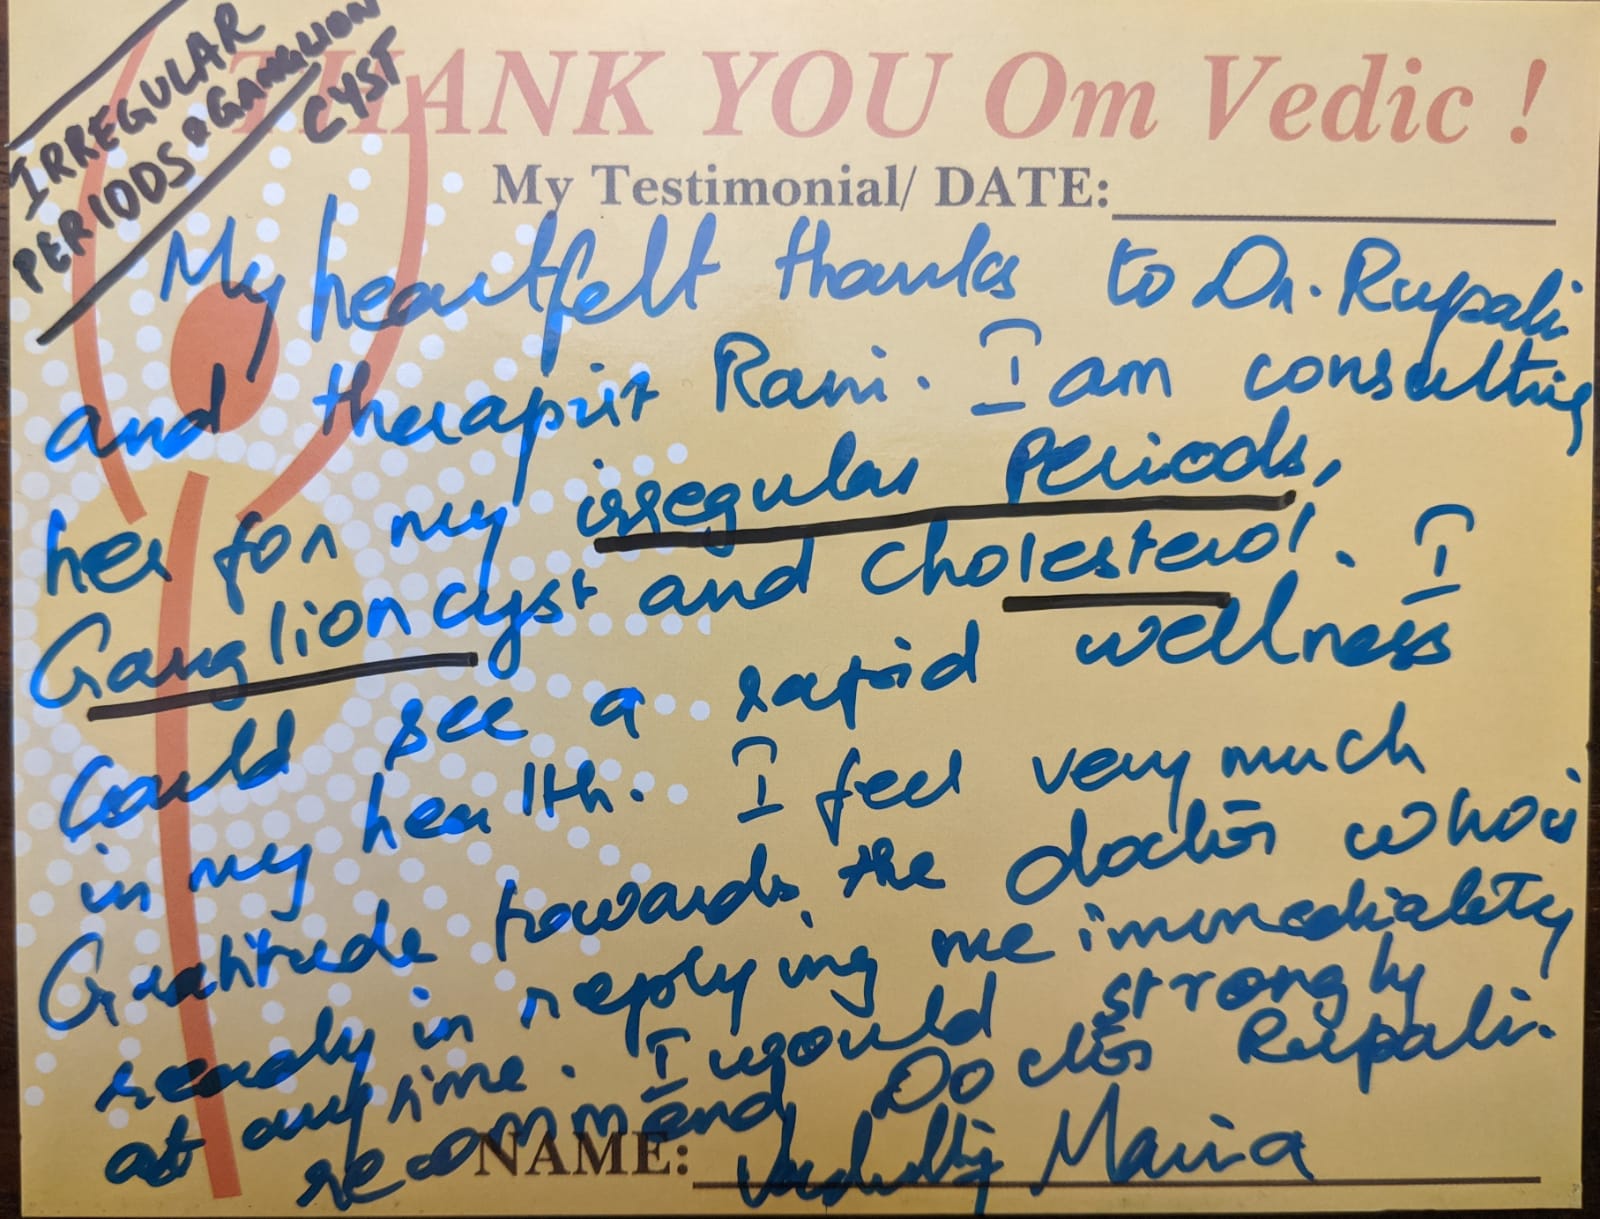 IRREGULAR
PERIODS & GANGLION
CYST
THANK YOU Om Vedic !
My Testimonial/ DATE:
My heartfelt thanks to Dr. Rupali
and therapist Rani. I am consulting
her for my irregular Periods,
Ganglion cyst and cholesterol. I
Could see a rapid wellness
in my health. I feel very much
Gratitude towards the doctor who is
ready in replying me immediately
at anytime. I would strongly
recommend Doctor Rupali.
NAME: Maria